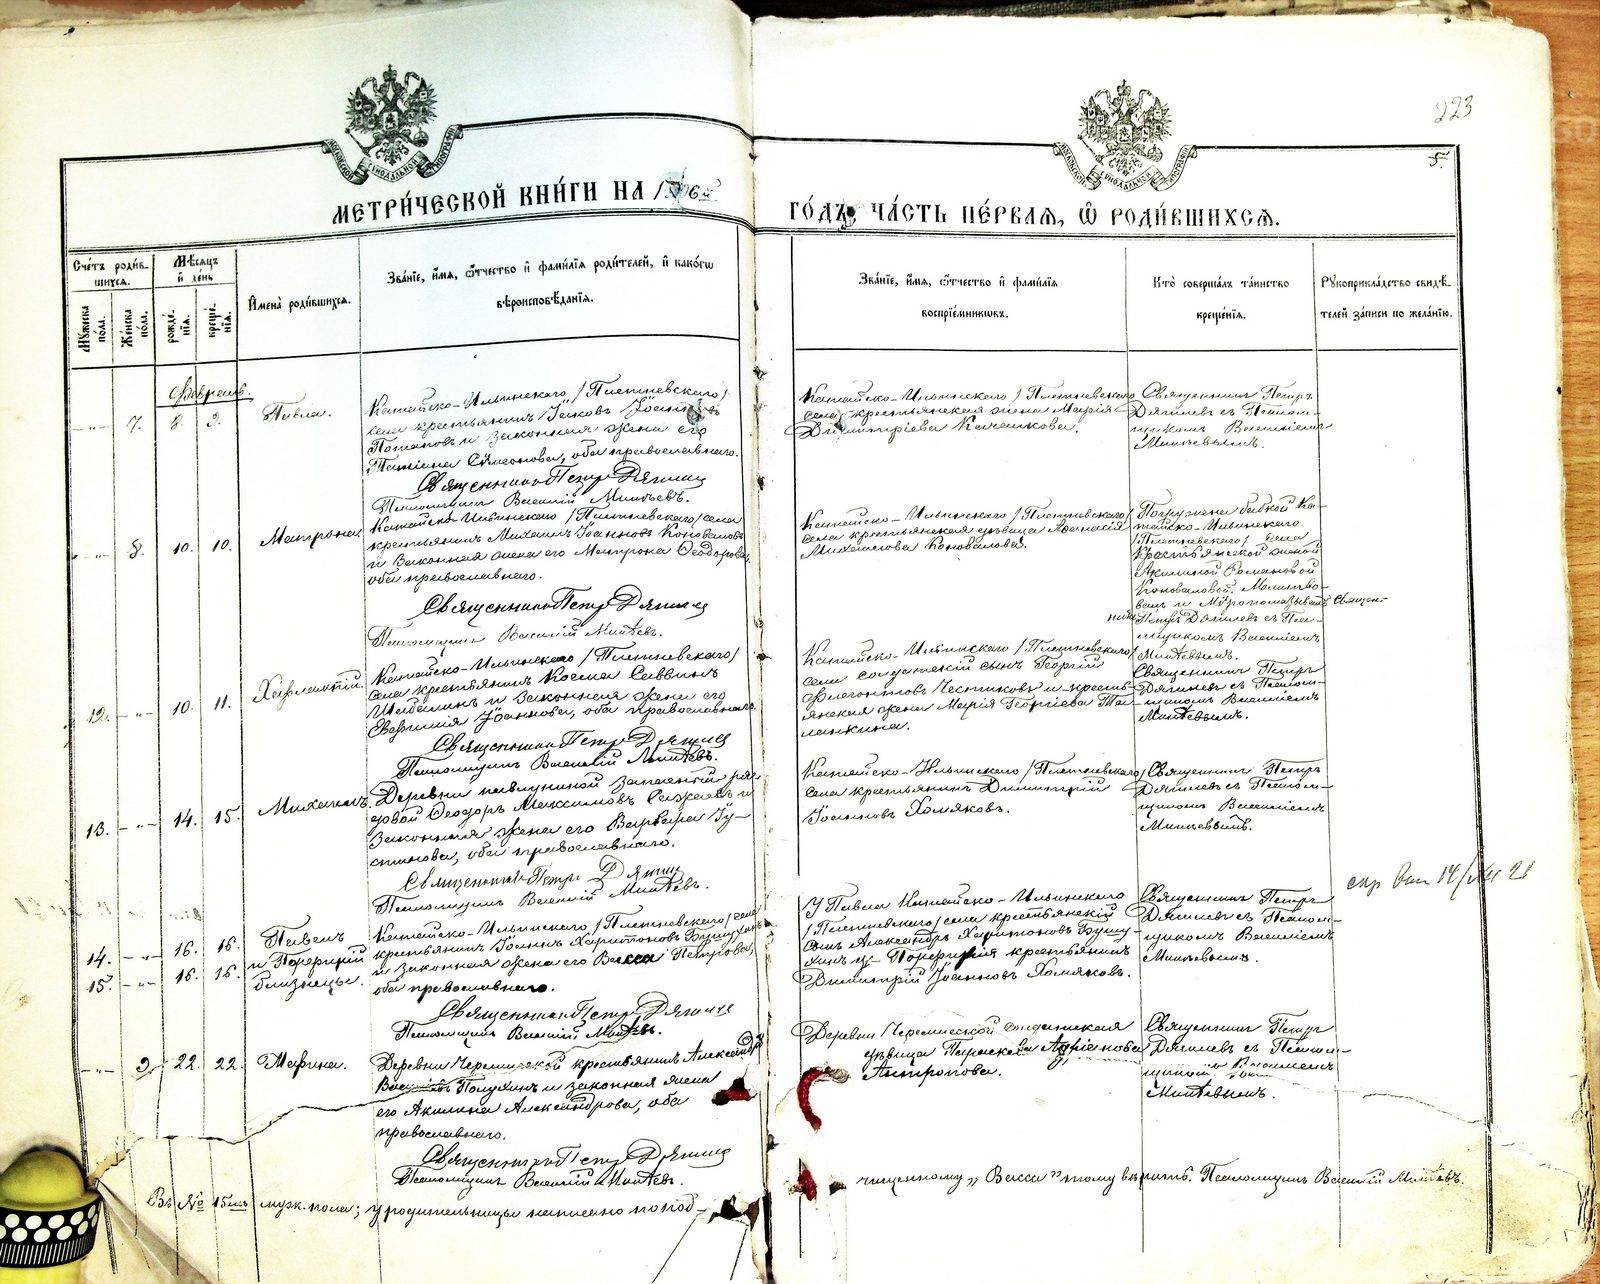 223
5.
МОСКОВСКОЙ СѴНОДАЛЬНОЙ ТИПОГРАФІИ
МОСКОВСКОЙ СѴНОДАЛЬНОЙ ТИПОГРАФІИ
МЕТРИ́ЧЕСКОЙ КНИ́ГИ НА 1906й ГО́ДЪ, ЧА́СТЬ ПЕ́РВАЯ, Ѡ҆ РОДИ́ВШИХСЯ.
Сче́тъ роди́в-
шихся.
Мꙋ́жеска по́ла.
Же́нска по́ла.
Мѣ́сяцъ
и҆ де́нь
рожде́-
нїя.
креще́-
нїя.
И҆мена̀ роди́вшихся.
Зва́нїе, и҆́мя, ѻ҆́тчество и҆ фами́лїя роди́телей, и҆ како́гѡ
вѣроисповѣ́данїя.
Зва́нїе, и҆́мя, ѻ҆́тчество и҆ фами́лїя
воспрїе́мникѡвъ.
Кто̀ соверша́лъ та́инство
креще́нїя.
Рꙋкоприкла́дство свидѣ́-
телей за́писи по жела́нїю.
Февраль.
-"- 7. 8. 9. Павла.
Катайско-Ильинскаго /Плетневскаго/
села крестьянинъ Іаковъ Іоанновъ
Потаповъ и законная жена его
Татіана Сѵмеонова, оба православнаго.
Священникъ Петръ Дягилев
Псаломщикъ Василій Митѣевъ.
Катайско-Ильинскаго /Плетневскаго
села крестьянская жена Марія
Димитріева Качашкова.
Священникъ Петръ
Дягилевъ съ Псалом-
щикомъ Василіемъ
Митѣевымъ.
-"- 8. 10. 10. Матрона.
Катайско-Ильинскаго /Плетневскаго/ села
крестьянинъ Михаилъ Іоанновъ Коноваловъ
и законная жена его Матрона Ѳеодорова,
оба православнаго.
Священникъ Петръ Дягилев
Псаломщикъ Василій Митѣевъ.
Катайско-Ильинскаго /Плетневскаго/
села крестьянская дѣвица Аѳанасія
Михаилова Коновалова.
Погружена бабкой Ка-
тайско-Ильинскаго
/Плетневскаго/ села
крестьянской женой
Акилиной Романовой
Коноваловой. Молитво-
валъ и Мѵропомазывалъ Священ-
никъ Петръ Дягилевъ съ Псалом-
щикомъ Василіемъ
Митѣевымъ.
12. -"- 10. 11. Харлампій.
Катайско-Ильинскаго /Плетневскаго/
села крестьянинъ Косма Саввинъ
и законная жена его
Евфимія Іоаннова, оба православнаго.
Священникъ Петръ Дягилев
Псаломщикъ Василій Митѣевъ.
Катайско-Ильинскаго /Плетневскаго/
села солдатскій сынъ Георгій
Флегонтовъ Чесноковъ и кресть-
янская жена Марія Георгіева Та-
ланкина.
Священникъ Петръ
Дягилевъ съ Псалом-
щикомъ Василіемъ
Митѣевымъ.
13. -"- 14. 15. Михаилъ.
Деревни запасный ря-
довой Ѳеодоръ Максимовъ и
законная жена его Варвара Іу-
стинова, оба православнаго.
Священникъ Петръ Дягилев
Псаломщикъ Василій Митѣевъ.
Катайско-Ильинскаго /Плетневскаго/
села крестьянинъ Димитрій
Іоанновъ Хомяковъ.
Священникъ Петръ
Дягилевъ съ Псалом-
щикомъ Василіемъ
Митѣевымъ.
14. -"- 16. 16. Павелъ
15. -"- 16. 16. и Порфирій
близнецы.
Катайско-Ильинскаго /Плетневскаго/ села
крестьянинъ Іоаннъ Харитоновъ Бушухинъ
и законная жена его Васса Петрова,
оба православнаго.
Священникъ Петръ Дягилев
Псаломщикъ Василій Митѣевъ.
У Павла Катайско-Ильинскаго
/Плетневскаго/ села крестьянскій
сынъ Александръ Харитоновъ Бушу-
хинъ у Порфирія крестьянинъ
Димитрій Іоанновъ Хомяковъ.
Священникъ Петръ
Дягилевъ съ Псалом-
щикомъ Василіемъ
Митѣевымъ.
14/XII 21
-"- 9. 22. 22. Марина.
Деревни Черемисской крестьянинъ Александръ
Полухинъ и законная жена
его Акилина Александрова, оба
православнаго.
Священникъ Петръ Дягилев
Псаломщикъ Василій Митѣевъ.
Деревни Черемисской солдатская
дѣвица Параскева Адріанова
Антропова.
Священникъ Петръ
Дягилевъ съ Псалом-
щикомъ Василіемъ
Митѣевымъ.
Въ № 15мъ муж. пола; у родительницы написано по под-
чищенному „Васса" тому вѣрить. Псаломщикъ Василій Митѣевъ.